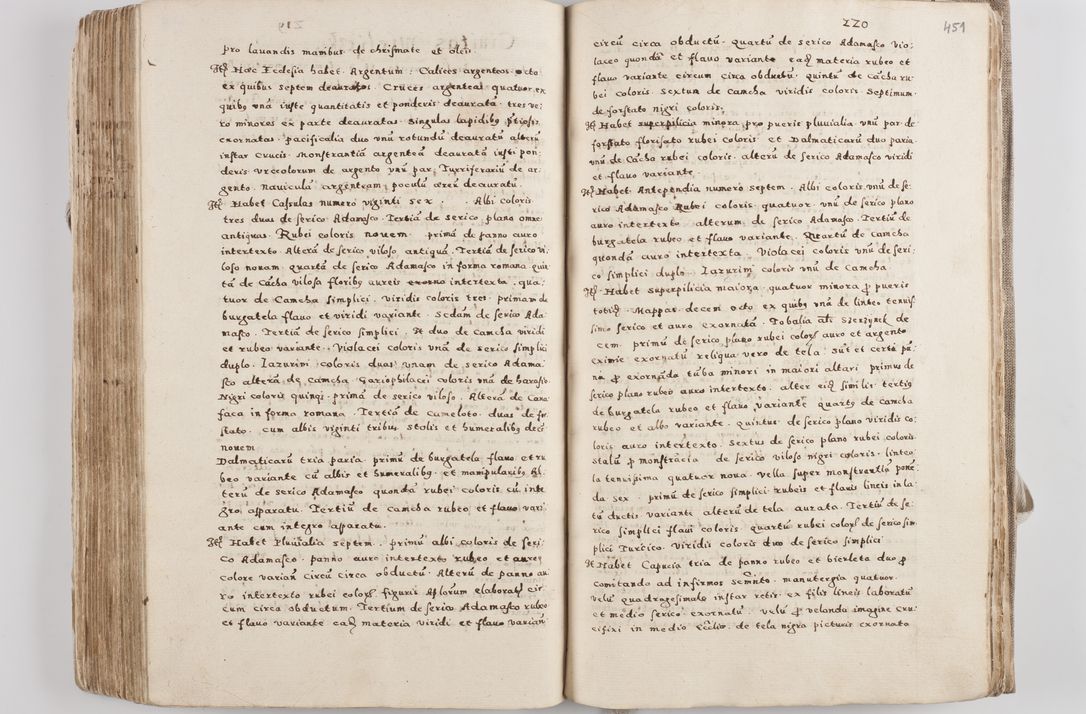 219
pro lauandis manibus de chrismate et oleis
Itē Haec Ecclesia habet Argentum: Calices argenteos octo
ex quibus septem deauratos. Cruces argenteas quatuor ex
quibꝰ vnā iuste quantitatis et ponderis deaurata. tres ve-
ro minores ex parte deauratas singulas lapidibꝰ
exornatas. pacificalia duo vnū rotundū deauratū alterū
instar Crucis. Monstrantiā argenteā deauratā iusti pon-
deris vrceolorum de argento vnū par, Turriferariū de ar-
gento. nauiculā argenteam, poculū aereū deauratū.
Itē Habet Casulas numero viginti sex. Albi coloris
tres duas de serico Adamasco. Tertiā de serico plano omnes
antiquas. Rubei coloris nouem primā de panno auro
intertexto Alterā de serico viloso antiquā. Tertiā de serico vi-
loso nouam quartā de serico Adamasco in forma romana quin
tā de Cācha vilosa floribꝰ aureis intertexta. qua-
tuor de Camcha simplici. viridis coloris tres. primam de
burgatela flauo et viridi variante. Secdām de serico Ada-
masco. Tertiā de serico simplici. It duo de camcha viridi
et rubeo variante. Violacei coloris vnā de serico simplici
duplo. Lazurini coloris duas vnam de serico Adama
sco alterā de camcha. Gariophilacei coloris vnā de
Nigri coloris quinqȝ. primā de serico viloso. Alterā de
faca in forma romana. Tertiā de cameloto. duas de for
stato. cum albis viginti tribus stolis et humeralibꝰ decē
nouem
Dalmaticarū tria paria. primū de burgatela flauo et ru
beo variante cū albis et humeralibꝰ et manipularibꝰ. Al-
terū de serico Adamasco quondā rubei coloris cū inte
gro apparatu. Tertiū de camcha rubeo et flauo vari
ante cum integro apparatu.
Itē Habet Pluuialia septem. primū albi coloris de seri-
co Adamasco. panno auro intertexto rubeo et aureo
colore varian Circū circa obductū. Alterū de panno au-
ro intertexto rubei colorȝ figuris Aplorum elaboratȝ cir
cum circa obductum. Tertium de serico Adamasco rubeo
et flauo variante eaqȝ materia viridi et flauo variañ
220
451
circū circa obductū. quartū de serico Adamasco vio-
laceo quondā et flauo variante eaqȝ materia rubeo et
flauo variante circum circa obductū. quintū de cācha ru
bei coloris. Sextum de camcha viridis coloris. Septimum
de forstato nigri coloris.
It Habet superpilicia minora pro pueris pluuialia vnū par de
forstato florisato rubei coloris et Dalmaticarū duo paria
vnū de Cācha rubei coloris alterū de serico Adamasco viridi
et flauo variante.
Itē Habet Antependia numero septem. Albi coloris vnū de se-
rico Adamasco Rubei coloris quatuor. vnū de serico plano
auro intertexto alterum de serico Adamasco. Tertiū de
burgatela rubeo et flauo variante. Quartū de camcha
quondā auro intertexta. Violacei coloris vnū de seri-
co simplici duplo. Lazurini coloris vnū de Camcha
Itē Habet superpilicia maiora quatuor minora ꝓ pueris
totidȝ. Mappas decem octo ex quibꝰ vnā de linteo tenuis
simo serico et auro exornatā. Tobalia als Szerzynek de
cem. primū de serico plano rubei colorȝ auro et argento
eximie exornatū reliqua vero de tela. Sūt et certa pā-
na ꝓ exornāda tūba minori in maiori altari primus de
serico plano rubeo auro intertexto. alter eiqȝ similis. tertiꝰ
de burgatela rubeo et flauo variante. quartꝰ de camcha
rubeo et albo variante. quintus de serico plano viridis co
loris auro intertexto. Sextus de serico plano rubei coloris
stalū ꝓ monstrācia de serico viloso nigri coloris. linteo
la tenuissima quatuor noua. Vella super monstrantiā ponē
da sex. primū de serico simplici rubeis et flauis lineis in la
tū ductis variante alterū de tela aurata. Tertiū de se-
rico simplici flaui coloris quartū rubei colorȝ de serico sim
plici Turcico. viridis coloris duo de serico simplici
It Habet Capucia tria de panno rubeo et bierleta duo ꝓ
comitando ad infirmos. manutergia quatuor.
Velū quadragesimale instar retis ex filis lineis laboratū
et medio serico exornatū. velū ꝓ velanda imagine cru
cifixi in medio Ecclie. de tela nigra picturis exornata